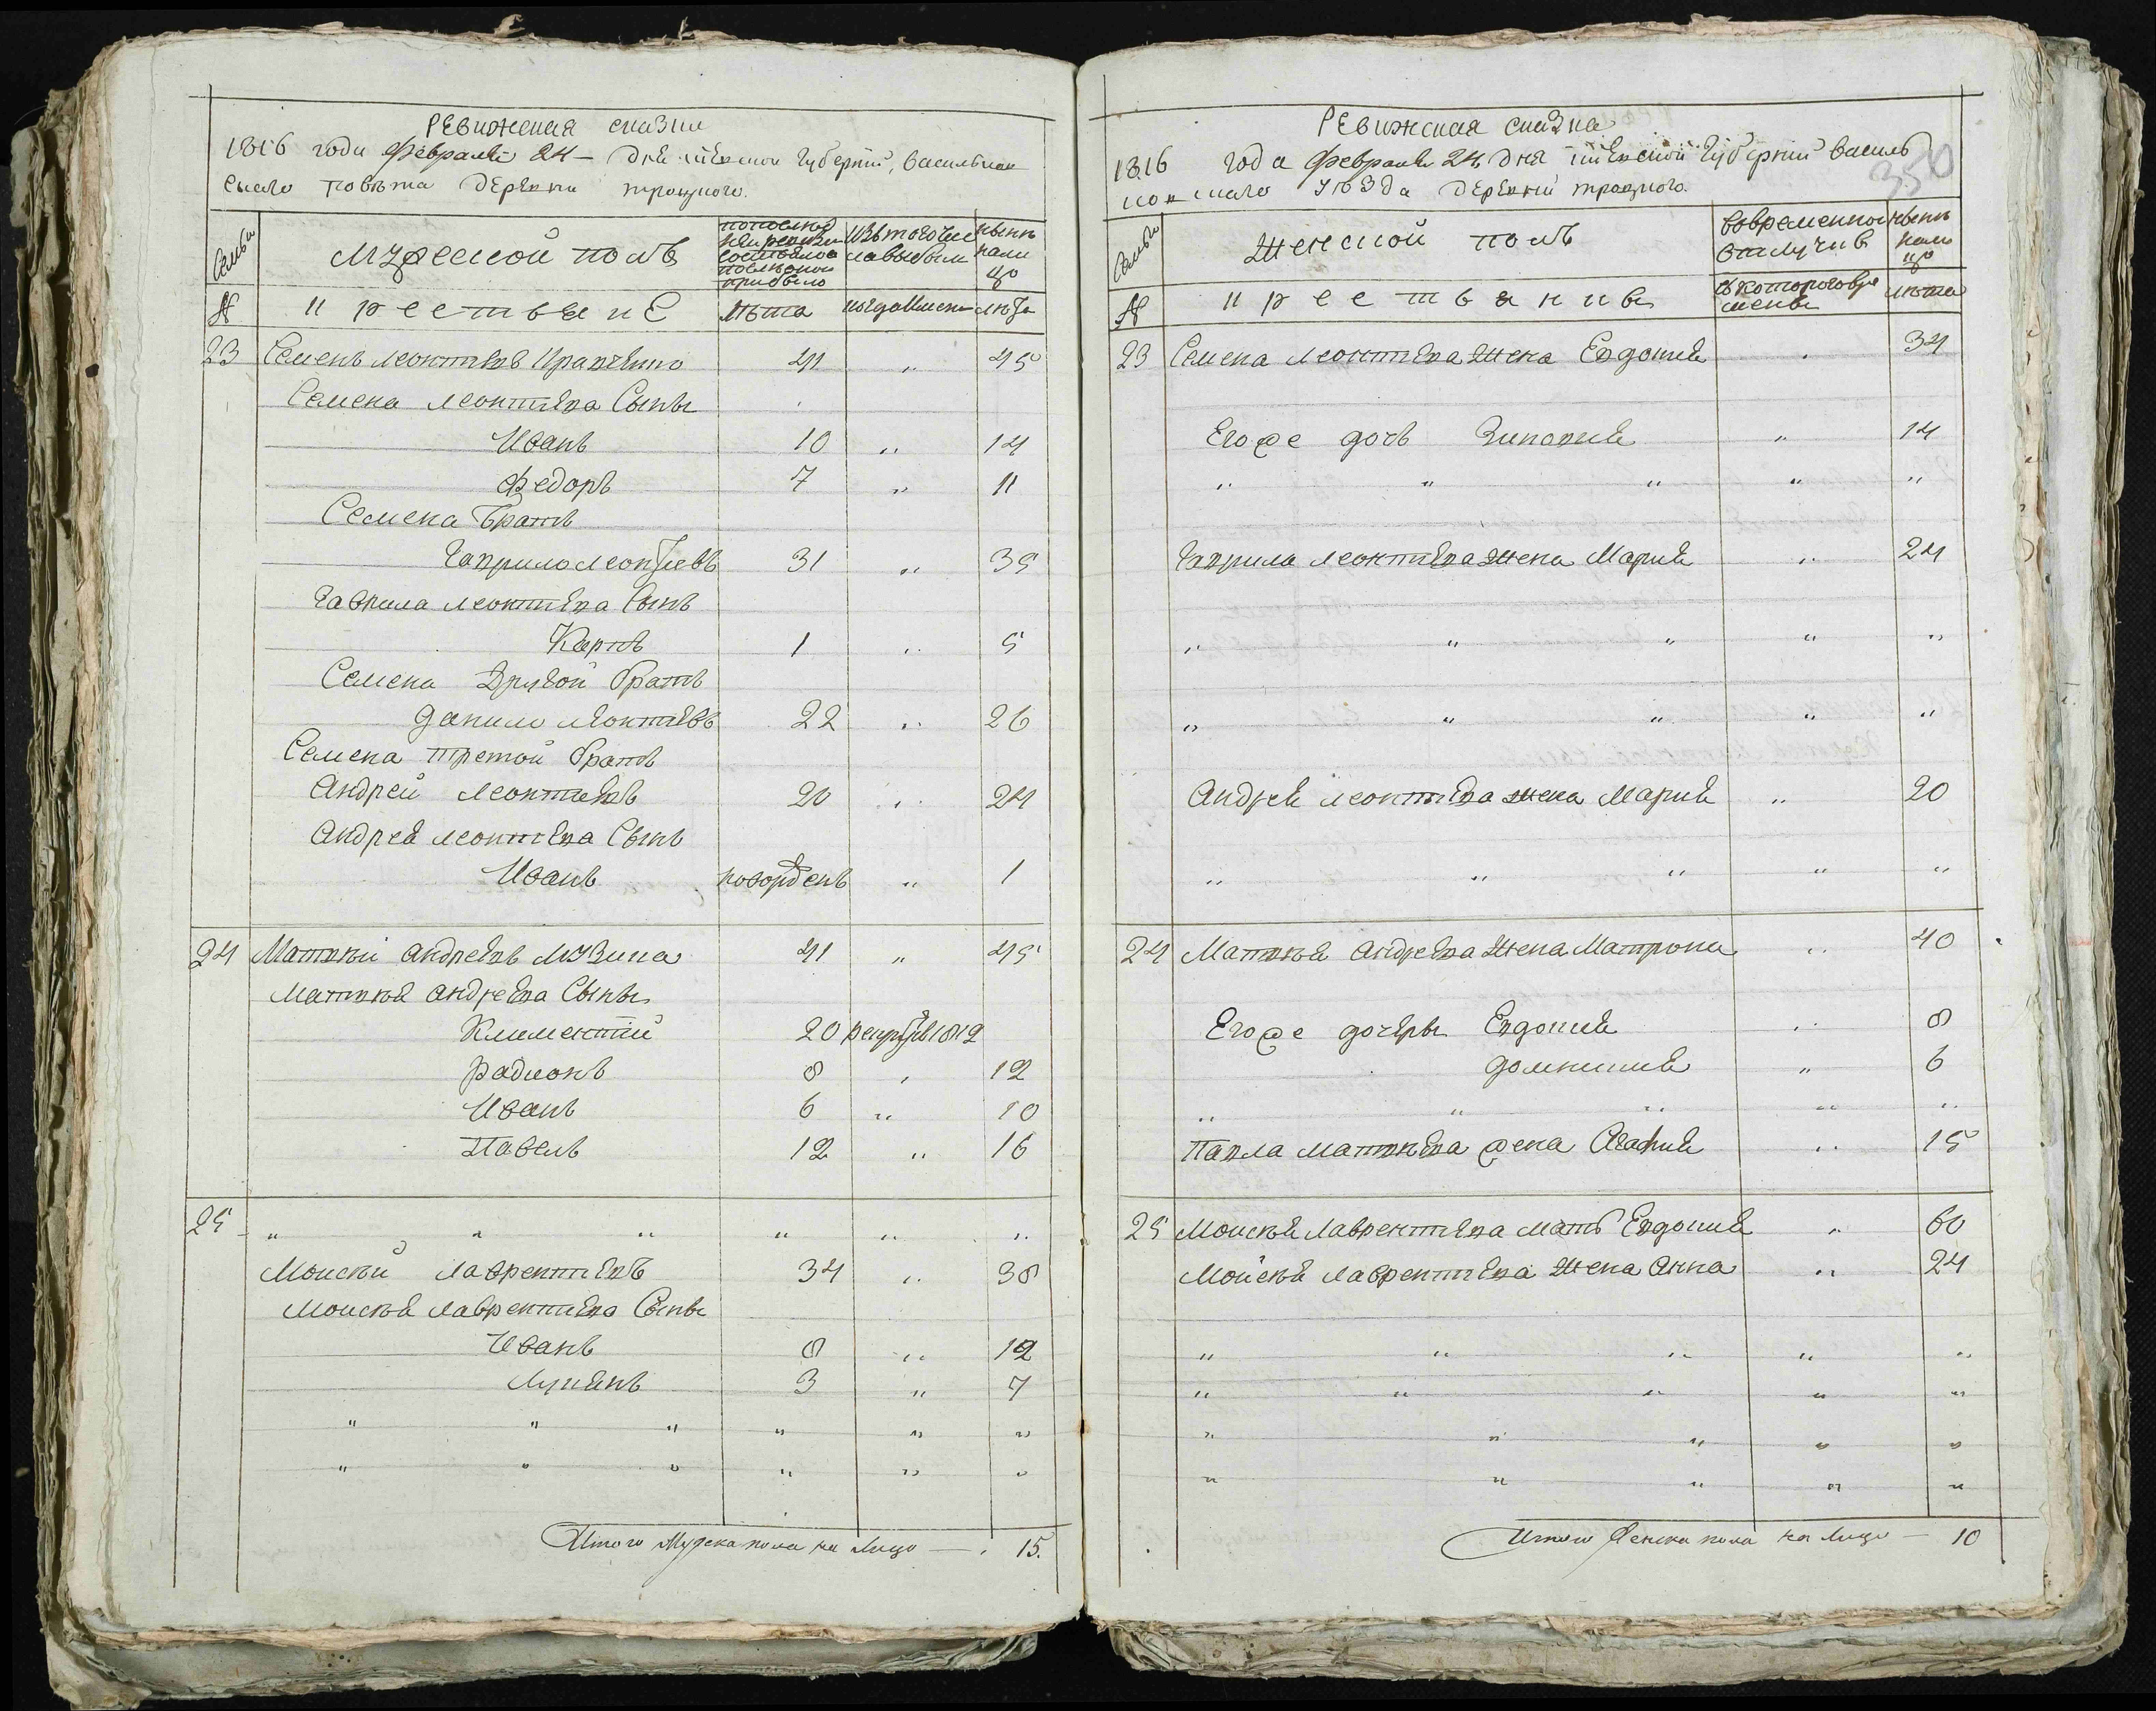 Ревижская сказка
1816 года февраля 24 – дня киевской губернии, Васильков
скаго повѣта деревни троцкого.
Семьи
Мужеской полъ
по последней ревизии состояло и после оной прибыло
Изъ того числа выбыли
нынѣ налицо
№
крестьяне
лѣта
когда именно
лѣта
23 Семенъ леонтиевъ Кравченко 41 „ 45
Семена леонтиева Сыны
Иванъ 10 „ 14
Федоръ 7 „ 11
Семена братъ
Гаврило леонтиевъ 31 „ 35
Гаврила леонтиева Сынъ
Карпъ 1 „ 5
Семена Другой братъ
Данило леонтиевъ 22 „ 26
Семена третой братъ
Андрей леонтиевъ 20 „ 24
Андрея леонтиева Сынъ
Иванъ новорожденъ „ 1
24 Матвѣй андреевъ 41 „ 45
Матвѣя андреева Сыны
Климентий 20 рекрутъ 1812
Радионъ 8 „ 12
Иванъ 6 „ 10
Павелъ 12 „ 16
25 „ „ „ „ „ „
Моисѣй лаврентиевъ 34 „ 38
Моисѣя лаврентиева Сыны
Иванъ 8 „ 12
Лукянъ 3 „ 7
„ „ „ „ „ „
„ „ „ „ „ „
Итого Мужска пола на лицо — 15.
Ревижская сказка
350
1816 года февраля 24 дня киевской губернии Василь
ковскаго уѣзда деревни троцкого.
Семьи
Женской полъ
Во временной отлучкѣ
нынѣ налицо
№
крестьянивъ
съ которого времени
лѣта
23 Семена леонтиева жена Евдокия „ 34
Егоже дочъ Зиновия „ 14
„ „ „ „ „
Гаврила леонтиева жена Мария „ 24
„ „ „ „ „
„ „ „ „ „
Андрея леонтиева жена Мария „ 20
„ „ „ „ „
24 Матвѣя андреева жена Матрона „ 40
Егоже дочеры Евдокия „ 8
Домникия „ 6
„ „ „ „ „
Павла матвѣева жена Агафия „ 15
25 Моисѣя лаврентиева мать Евдокия „ 60
Моисѣя лаврентиева жена Анна „ 24
„ „ „ „ „
„ „ „ „ „
„ „ „ „ „
„ „ „ „ „
Итого Женска пола на лицо — 10